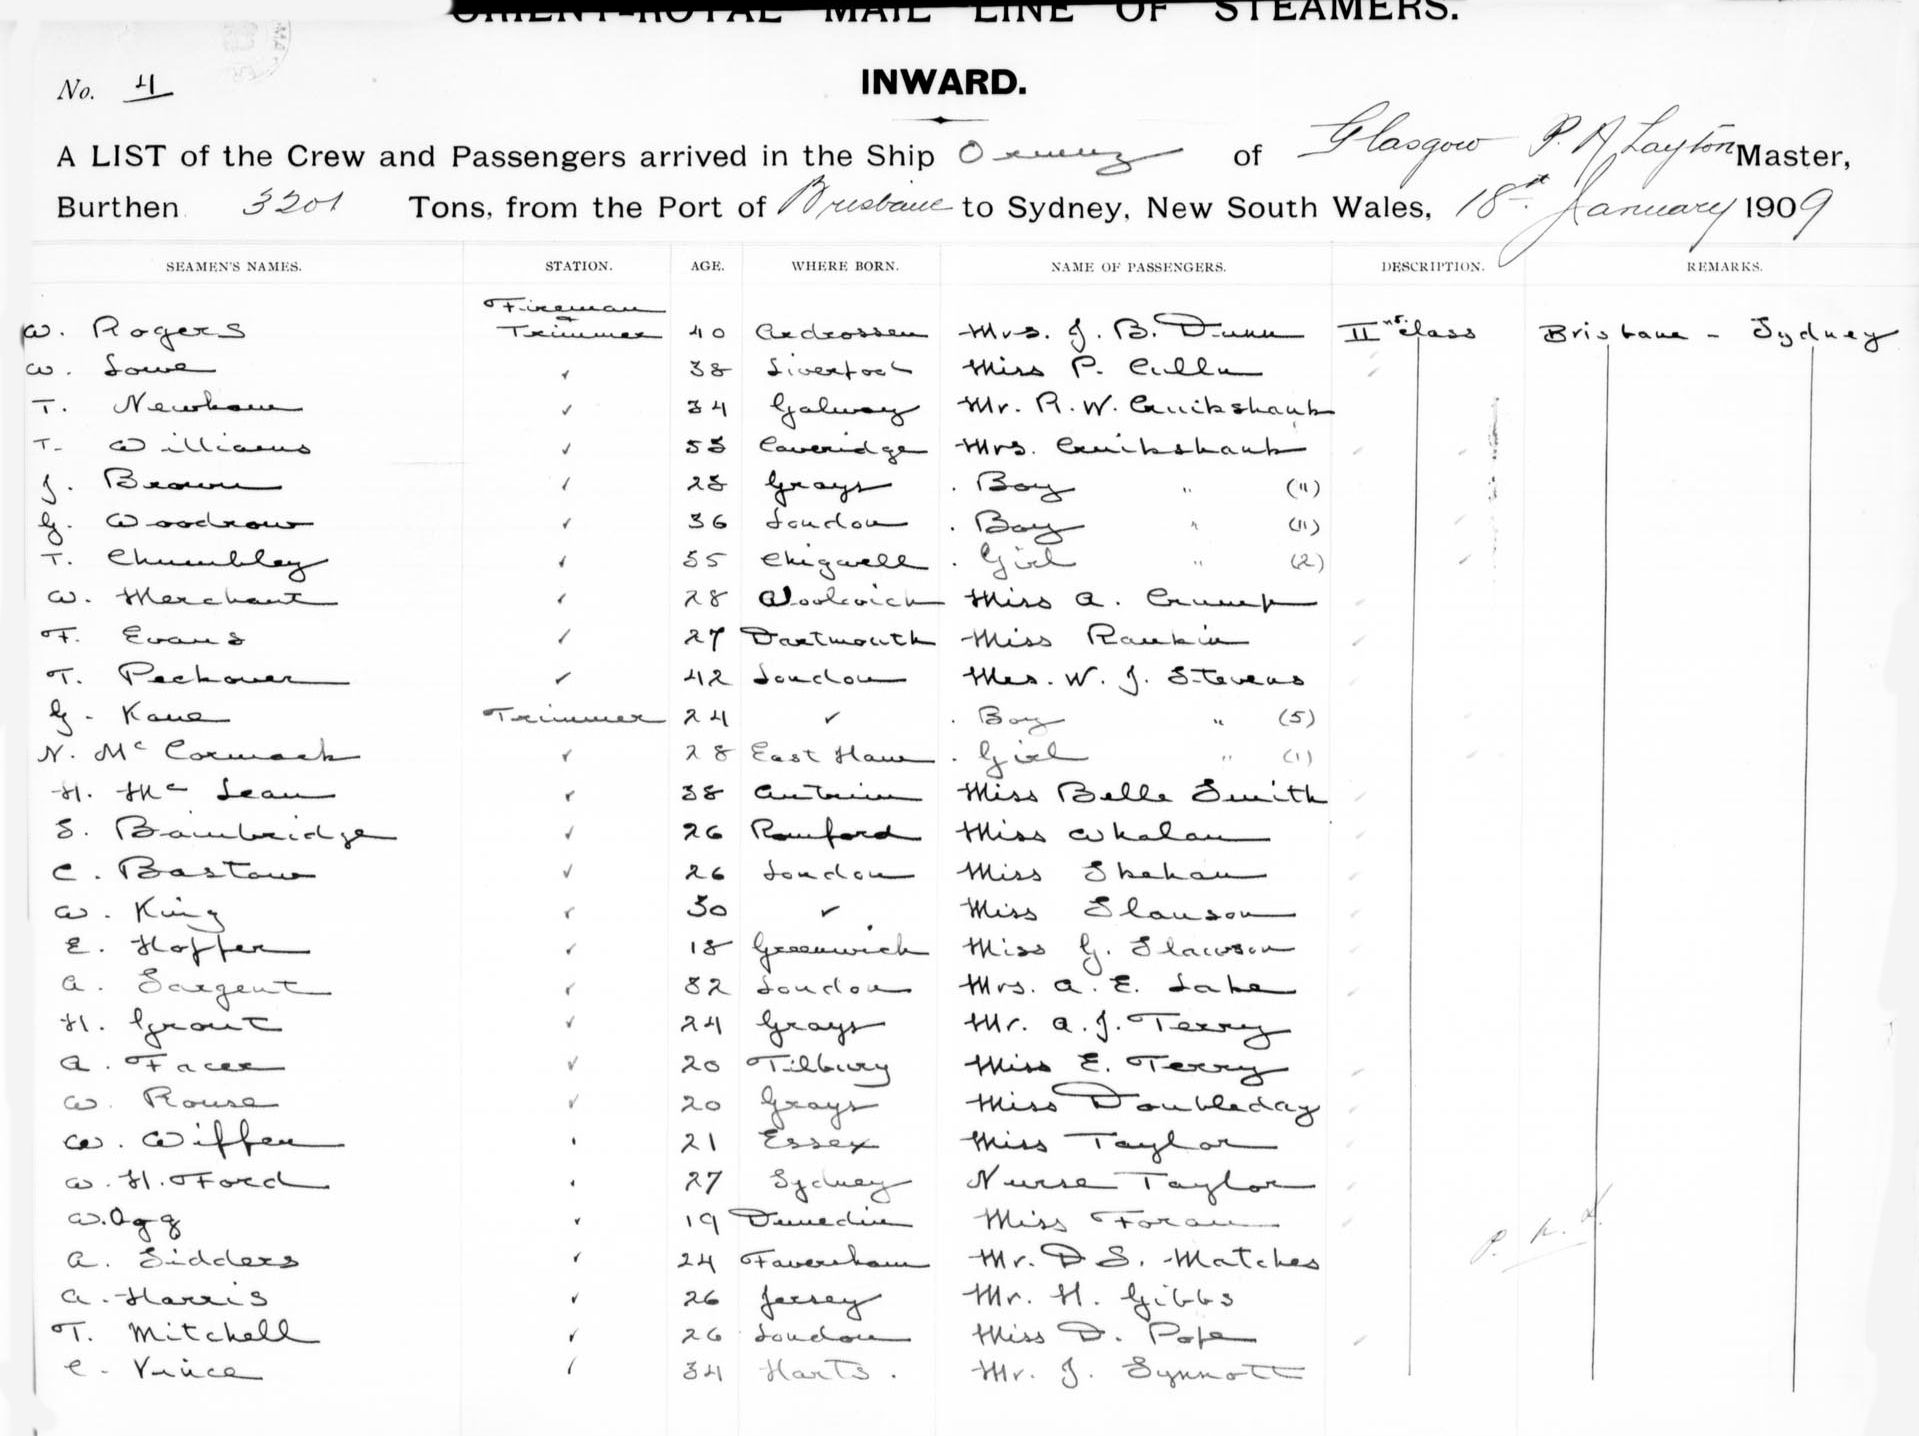 ORIENT-ROYAL MAIL LINE OF STEAMERS.
No. 4
INWARD.
A LIST of the Crew and Passengers arrived in the Ship Ormuz of Glasgow P. A Layton Master,
Burthen 3201 Tons, from the Port of Brisbane to Sydney, New South Wales, 18th January 1909
SEAMEN'S NAMES. STATION. AGE. WHERE BORN. NAME OF PASSENGERS. DESCRIPTION. REMARKS.
W. Rogers Fireman & Trimmer 40 Ardrossen Mrs. J. B. Dunn IInd class Brisbane - Sydney
W. Lowe ✓ 38 Liverpool Miss P. Cullen
T. Newham ✓ 34 Galway Mr. R. W. Cruikshank
T. Williams ✓ 53 Mrs. Cruikshank
J. Brown ✓ 28 Grays Boy " (11)
G. Woodrow ✓ 36 London Boy " (11)
T. Chumbley ✓ 35 Chigwell Girl " (2)
W. Merchant ✓ 28 Woolwich Miss A. Crump
F. Evans ✓ 27 Dartmouth Miss Rankin
T. Peckover ✓ 42 London Mrs. W. J. Stevens
G. Kane Trimmer 24 ✓ Boy " (5)
N. McCormack ✓ 28 East Ham Girl " (1)
H. McLean ✓ 38 Antrim Miss Belle Smith
S. Bainbridge ✓ 26 Romford Miss Whelan
C. Bastow ✓ 26 London Miss Shehan
W. King ✓ 30 ✓ Miss Slauson
E. Hoffer ✓ 18 Greenwich Miss G. Slawson
A. Sargent ✓ 32 London Mrs. A. E. Lake
H. Grout ✓ 24 Grays Mr. A. J. Terry
A. Facer ✓ 20 Tilbury Miss E. Terry
W. Rouse ✓ 20 Grays Miss Doubleday
W. Wiffen ✓ 21 Essex Miss Taylor
W. H. Ford ✓ 27 Sydney Nurse Taylor
W. Ogg ✓ 19 Dunedin Miss Foran
A. Sidders ✓ 24 Faversham Mr. D S. Matches
A. Harris ✓ 26 Jersey Mr. H. Gibbs
T. Mitchell ✓ 26 London Miss D. Pope
C. Vince ✓ 34 Harts. Mr. J. Synnott